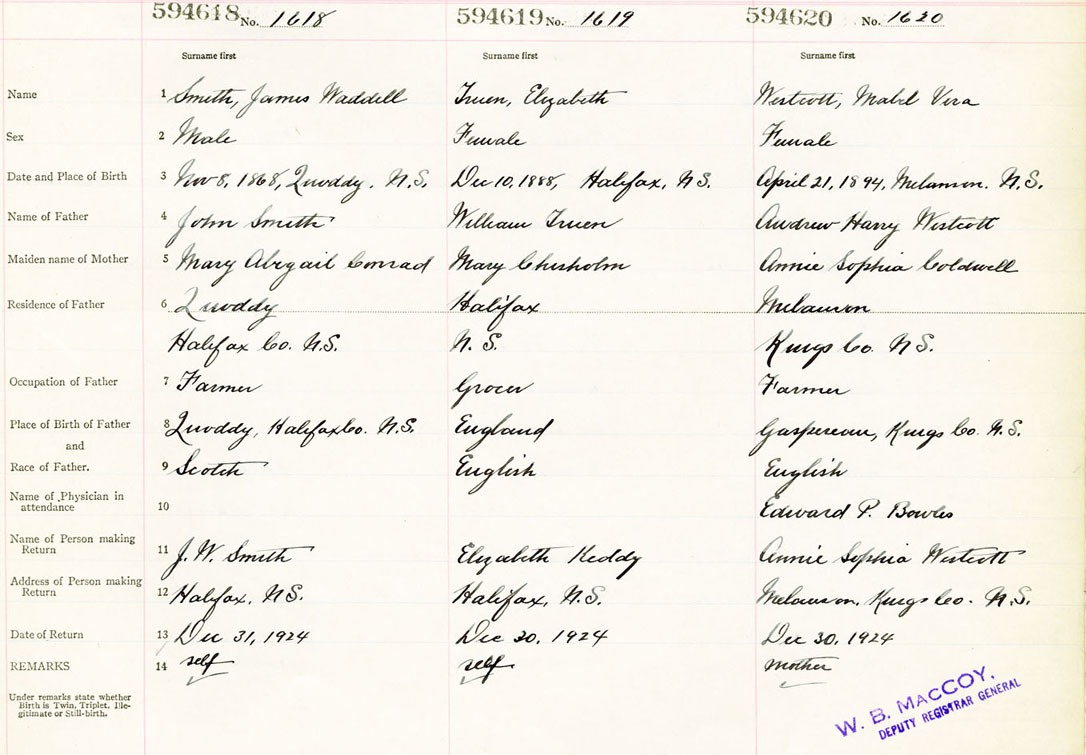 594618 No. 1618 594619 No. 1619 594620 No. 1620
Surname first Surname first Surname first
Name 1 Smith, James Waddell Truen, Elizabeth Westcott, Mabel Vera
Sex 2 Male Female Female
Date and Place of Birth 3 Nov 8, 1868, Quoddy. N.S. Dec 10, 1888, Halifax, N.S. April 21, 1894, Melanson. N.S.
Name of Father 4 John Smith William Truen Andrew Harry Westcott
Maiden name of Mother 5 Mary Abigail Conrad Mary Chisholm Annie Sophia Coldwell
Residence of Father 6 Quoddy Halifax Melanson
Halifax Co. N.S. N. S. Kings Co. N S.
Occupation of Father 7 Farmer Grocer Farmer
Place of Birth of Father 8 Quoddy, Halifax Co. N.S. England Gaspereau, Kings Co. N.S.
and
Race of Father. 9 Scotch English English
Name of Physician in
attendance 10 Edward P. Bowles
Name of Person making
Return 11 J. W. Smith Elizabeth Keddy Annie Sophia Westcott
Address of Person making
Return 12 Halifax, N.S. Halifax, N.S. Melanson, Kings Co. N.S.
Date of Return 13 Dec 31, 1924 Dec 30, 1924 Dec 30, 1924
REMARKS 14 self self mother
Under remarks state whether
Birth is Twin, Triplet, Ille-
gitimate or Still-birth.
W. B. MacCOY,
DEPUTY REGISTRAR GENERAL